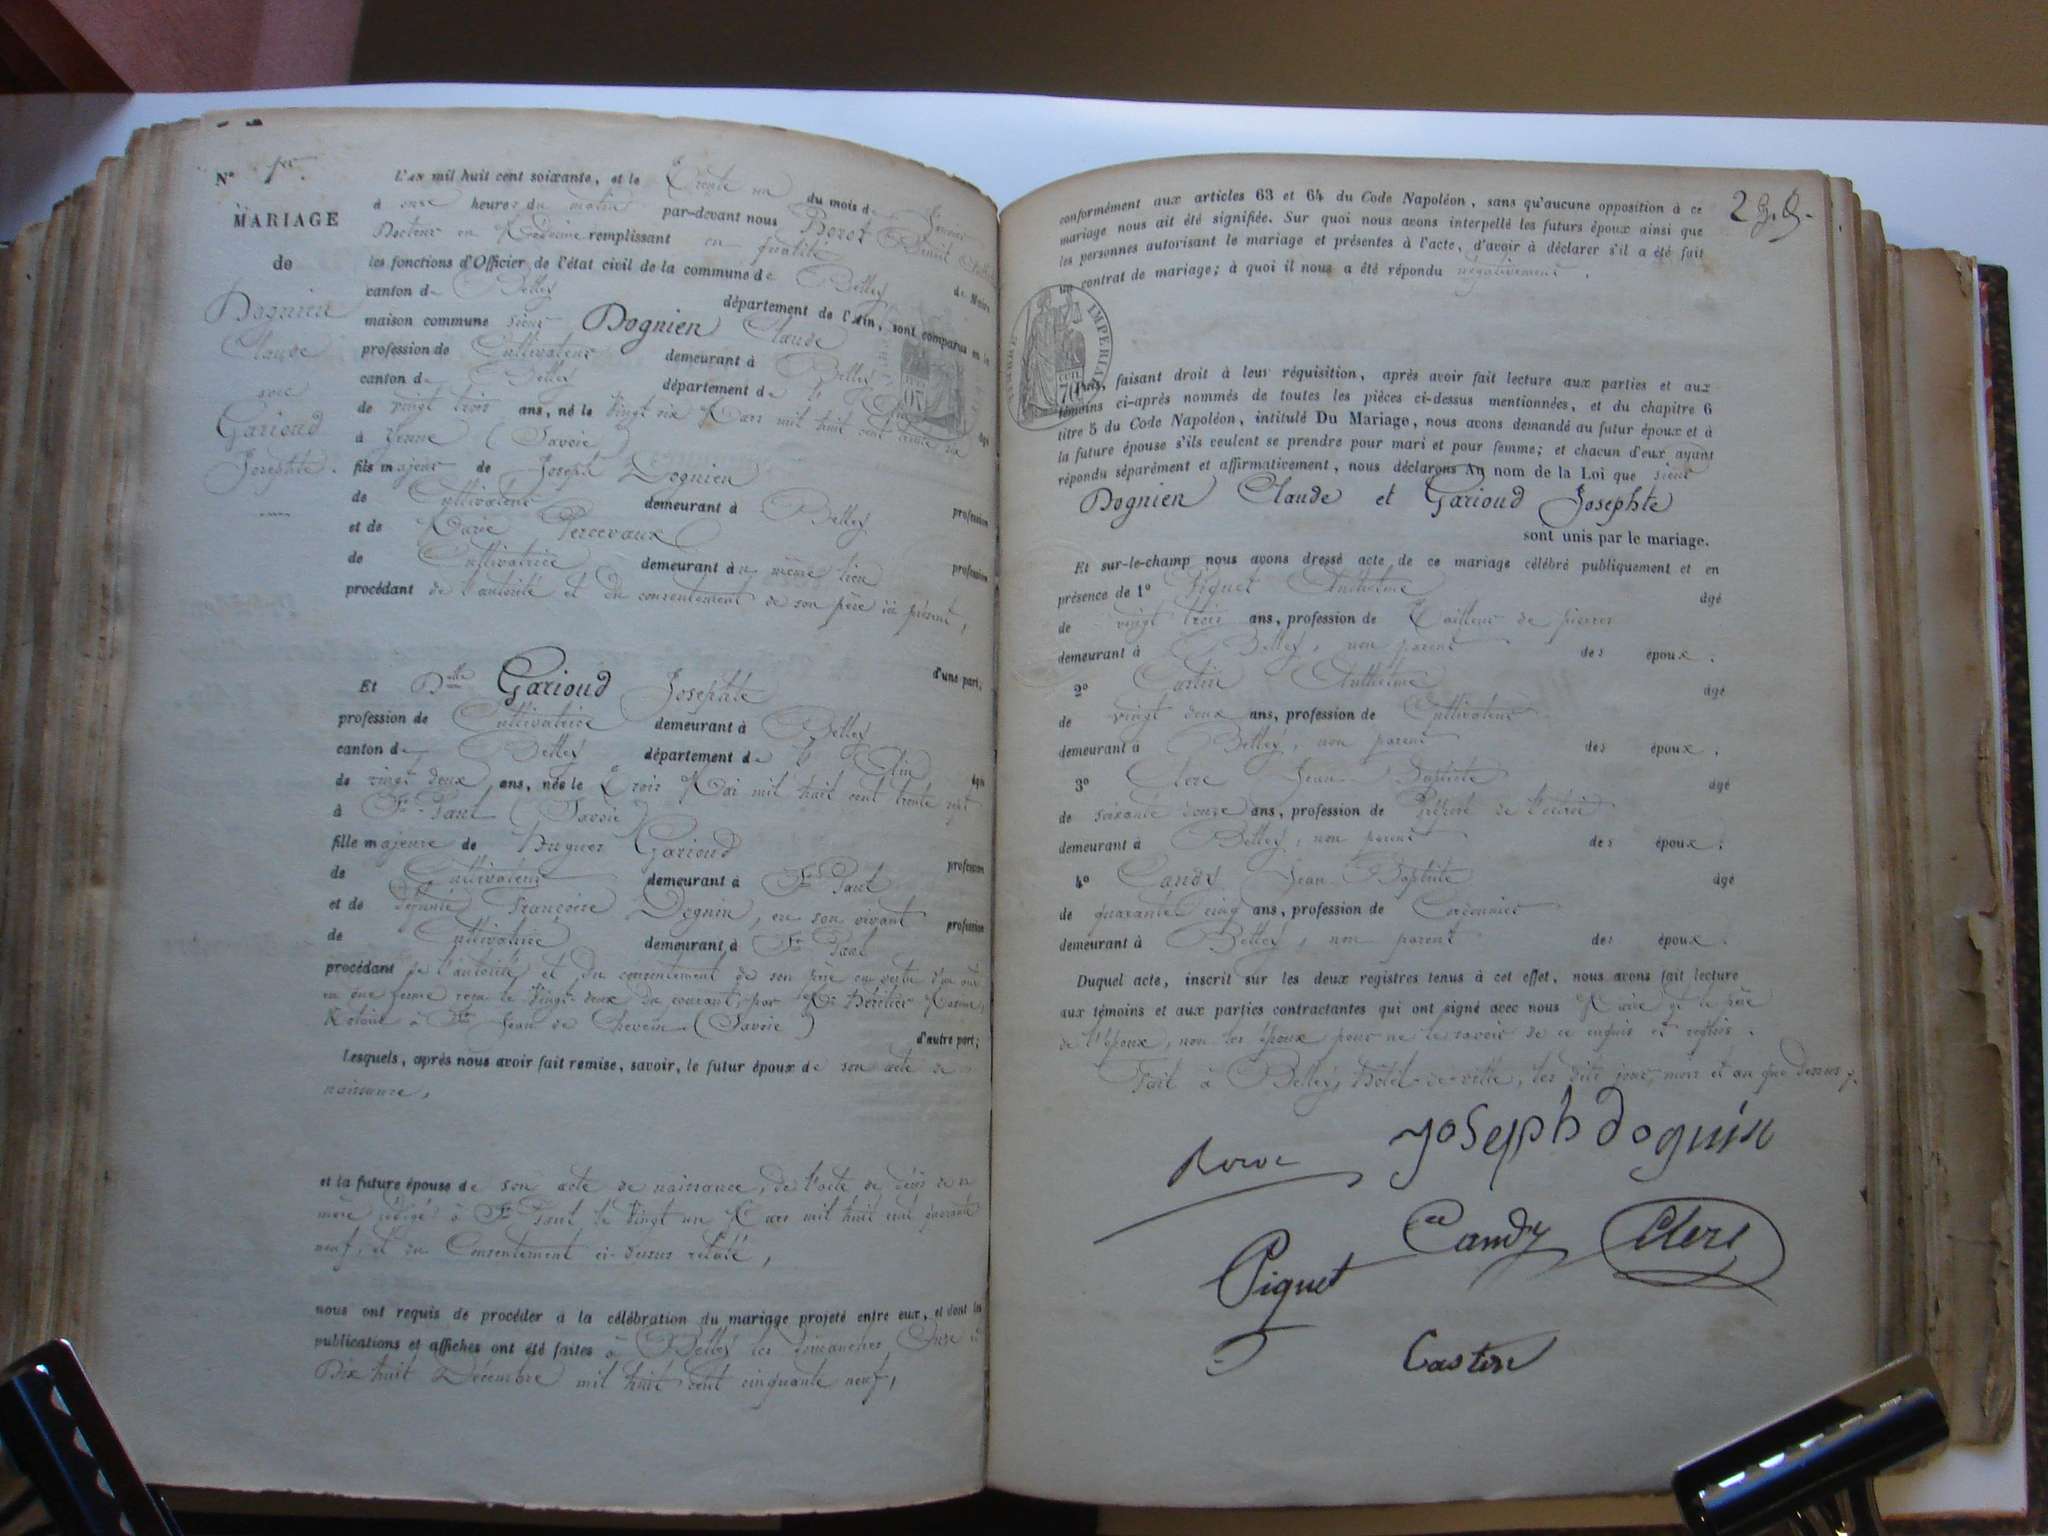 N° 1er
MARIAGE
de
Dognien
Claude
avec
Garioud
Josephte.
L'AN mil huit cent soixante, et le Trente un du mois de Janvier
à onze heures du matin par-devant nous Boror
Docteur en Médecine remplissant en qualité de Maire
les fonctions d'Officier de l'état civil de la commune de Belley
canton de Belley département de l'Ain, sont comparus en la
maison commune sieur Dognien Claude
profession de Cultivateur demeurant à Belley
canton de Belley département de l'Ain âgé
de vingt trois ans, né le vingt six Mars mil huit cent trente six
à Yenne (Savoie)
fils majeur de Joseph Dognien profession
de Cultivateur demeurant à Belley
et de Marie Percevaux profession
de Cultivatrice demeurant au même lieu
procédant de l'autorité et du consentement de son père ici présent,
d'une part;
Et Delle Garioud Josephte
profession de Cultivatrice demeurant à Belley
canton de Belley département de l'Ain âgée
de vingt deux ans, née le Trois Mai mil huit cent trente sept
à St Paul (Savoie)
fille majeure de Hugues Garioud profession
de Cultivateur demeurant à St Paul
et de défunte Françoise Dognin, en son vivant profession
de Cultivatrice demeurant à St Paul
procédant de l'autorité et du consentement de son père en vertu d'un acte
en due forme reçu le vingt-deux du courant, par Me Héritier Cosme,
Notaire à St Jean de Chevelu (Savoie)
d'autre part;
Lesquels, après nous avoir fait remise, savoir, le futur époux de son acte de
naissance,
et la future épouse de son acte de naissance, de l'acte de décès de sa
mère rédigé à St Paul le vingt un Mars mil huit cent quarante
neuf, et du Consentement ci-dessus relaté,
nous ont requis de procéder à la célébration du mariage projeté entre eux, et dont les
publications et affiches ont été faites à Belley les dimanches Onze et
Dix huit Décembre mil huit cent cinquante neuf,
2
conformément aux articles 63 et 64 du Code Napoléon, sans qu'aucune opposition à ce
mariage nous ait été signifiée. Sur quoi nous avons interpellé les futurs époux ainsi que
les personnes autorisant le mariage et présentes à l'acte, d'avoir à déclarer s'il a été fait
un contrat de mariage; à quoi il nous a été répondu négativement.
TIMBRE IMPERIAL
70
Puis, faisant droit à leur réquisition, après avoir fait lecture aux parties et aux
témoins ci-après nommés de toutes les pièces ci-dessus mentionnées, et du chapitre 6
titre 5 du Code Napoléon, intitulé Du Mariage, nous avons demandé au futur époux et à
la future épouse s'ils veulent se prendre pour mari et pour femme; et chacun d'eux ayant
répondu séparément et affirmativement, nous déclarons Au nom de la Loi que sieur
Dognien Claude et Garioud Josephte
sont unis par le mariage.
Et sur-le-champ nous avons dressé acte de ce mariage célébré publiquement et en
présence de 1° Piguet Anthelme âgé
de vingt trois ans, profession de Tailleur de pierres
demeurant à Belley, non parent des époux.
2° Castin Anthelme âgé
de vingt deux ans, profession de Cultivateur
demeurant à Belley, non parent des époux.
3° Clerc Jean Baptiste âgé
de soixante douze ans, profession de Préposé de l'octroi
demeurant à Belley, non parent des époux.
4° Candy Jean-Baptiste âgé
de quarante cinq ans, profession de Cordonnier
demeurant à Belley, non parent des époux.
Duquel acte, inscrit sur les deux registres tenus à cet effet, nous avons fait lecture
aux témoins et aux parties contractantes qui ont signé avec nous Maire et le père
de l'époux, non les époux pour ne le savoir de ce enquis et requis.
Fait à Belley, hôtel-de-ville, les dits jour, mois et an que dessus.
Joseph dognin
Candy Clerc
Piguet
Castin